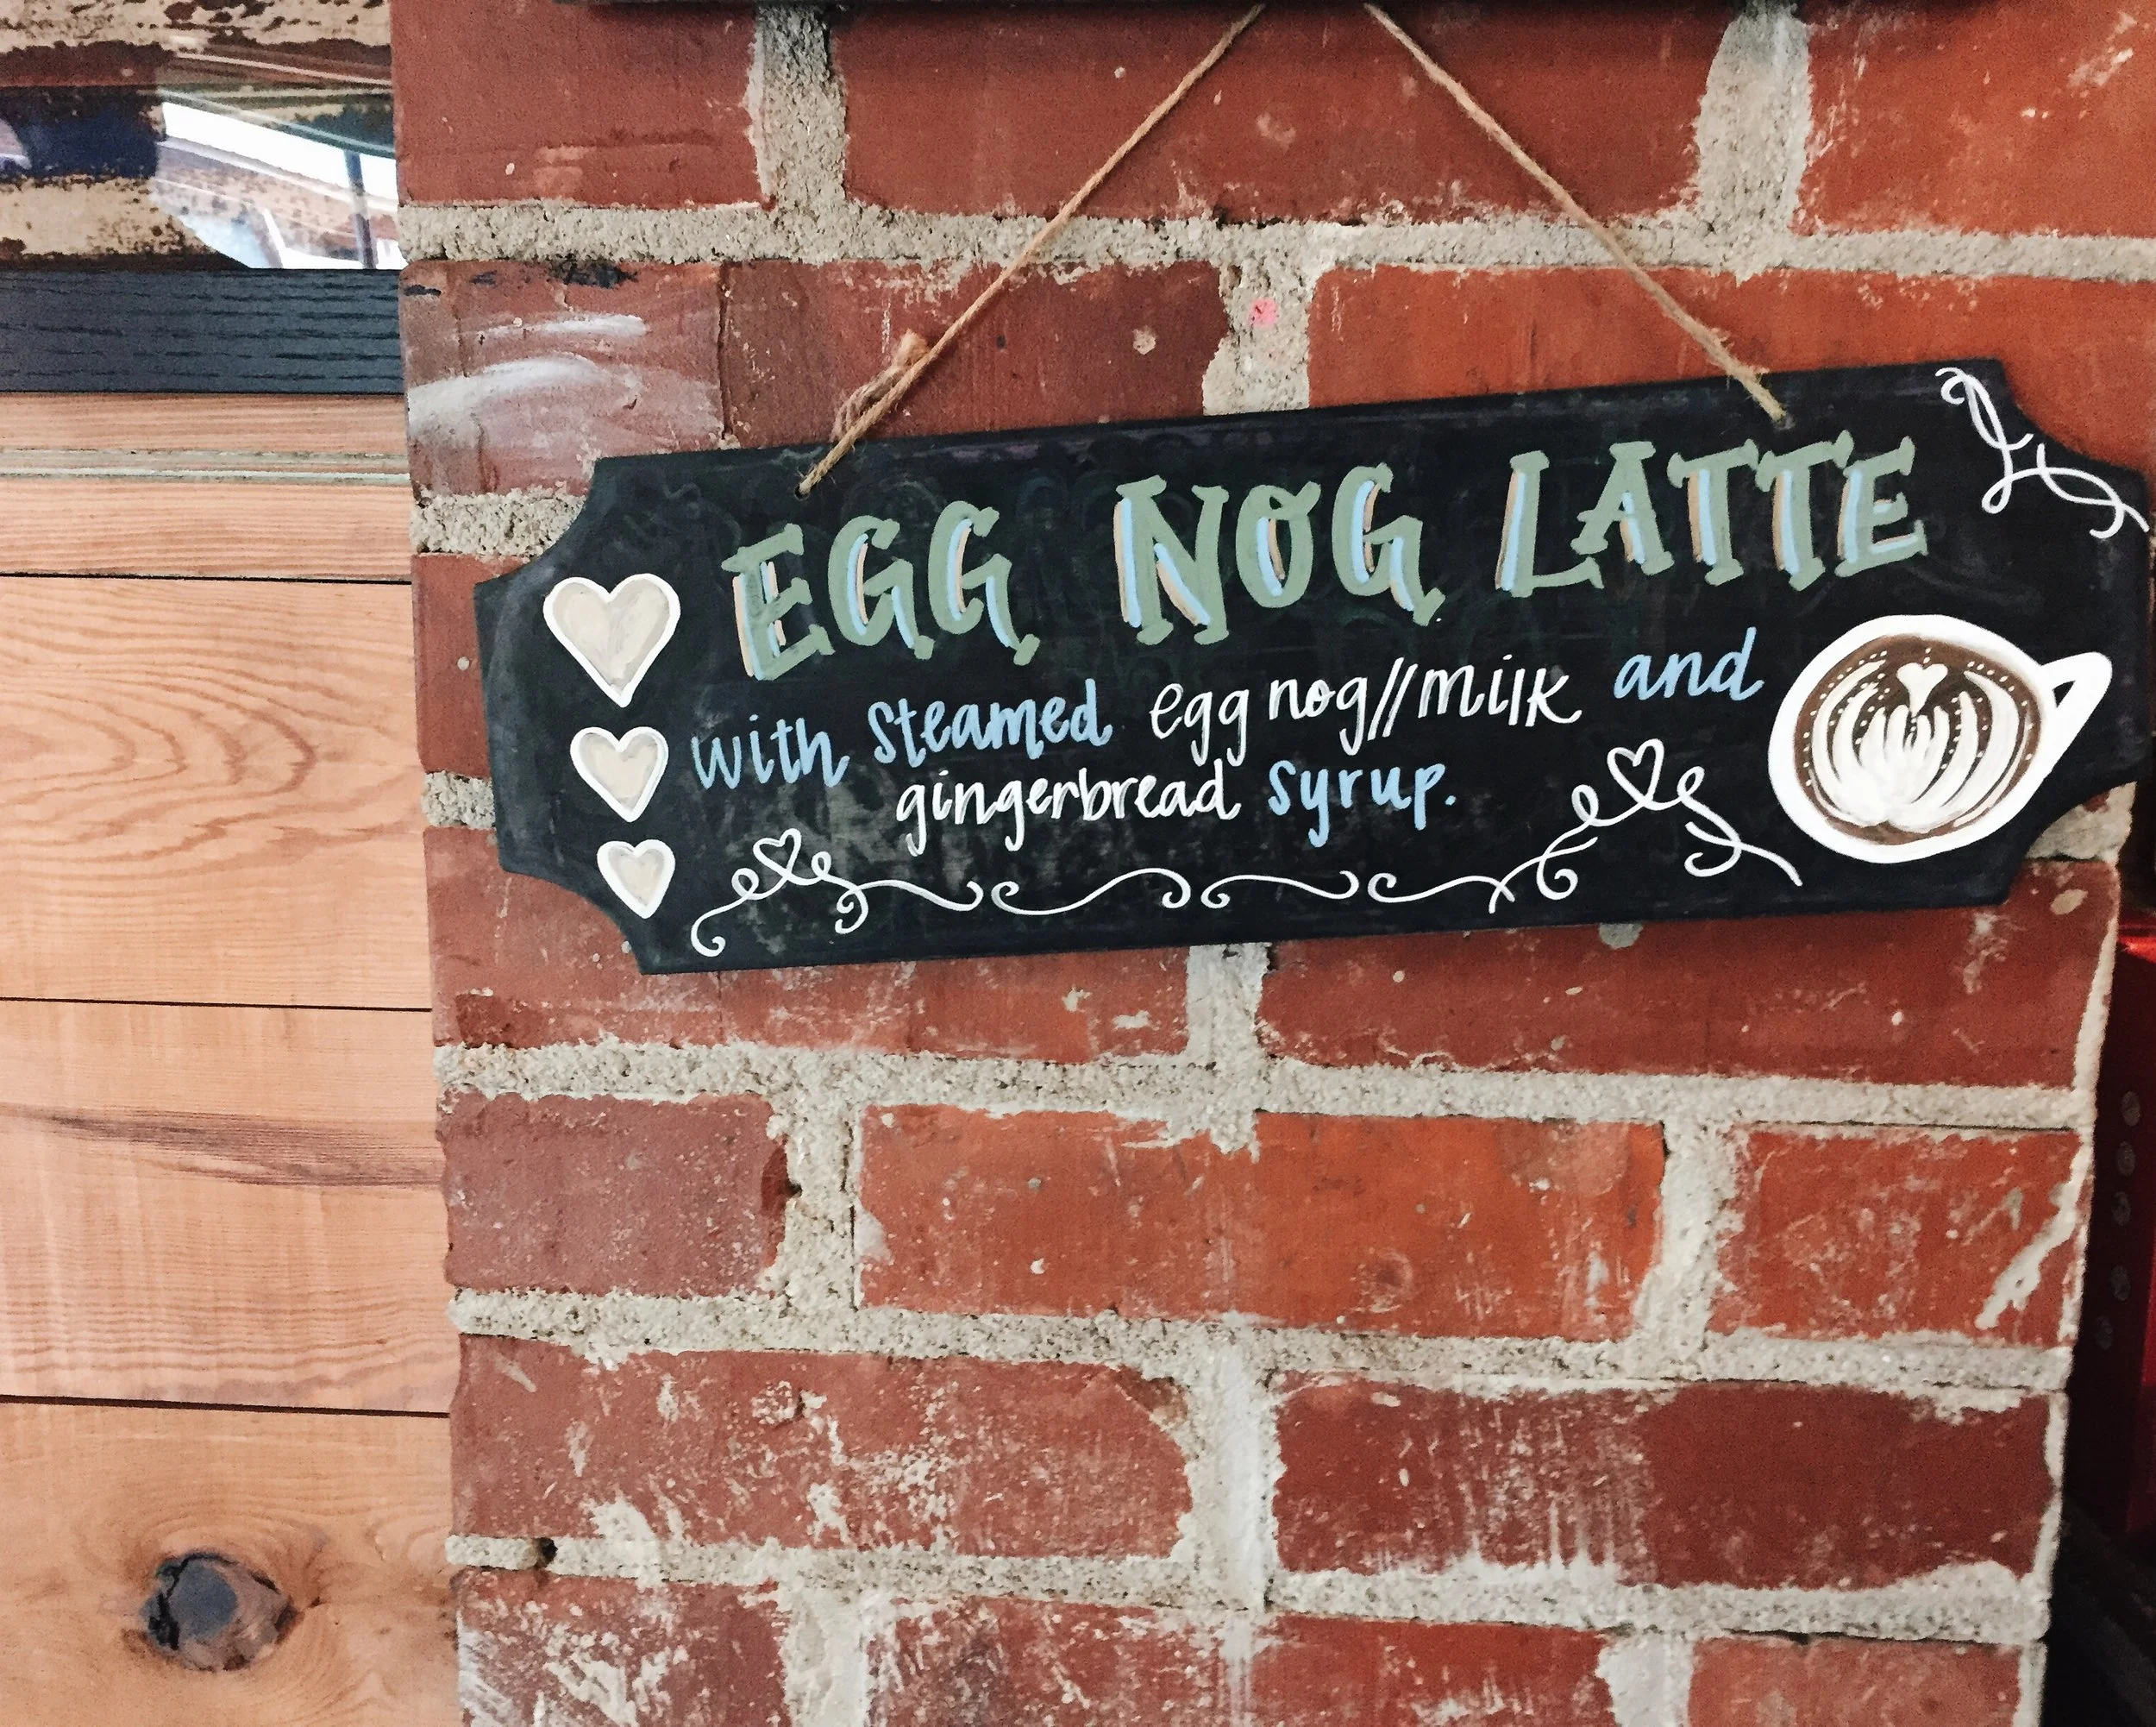 EGG NOG LATTE
with steamed egg nog//milk and
gingerbread syrup.